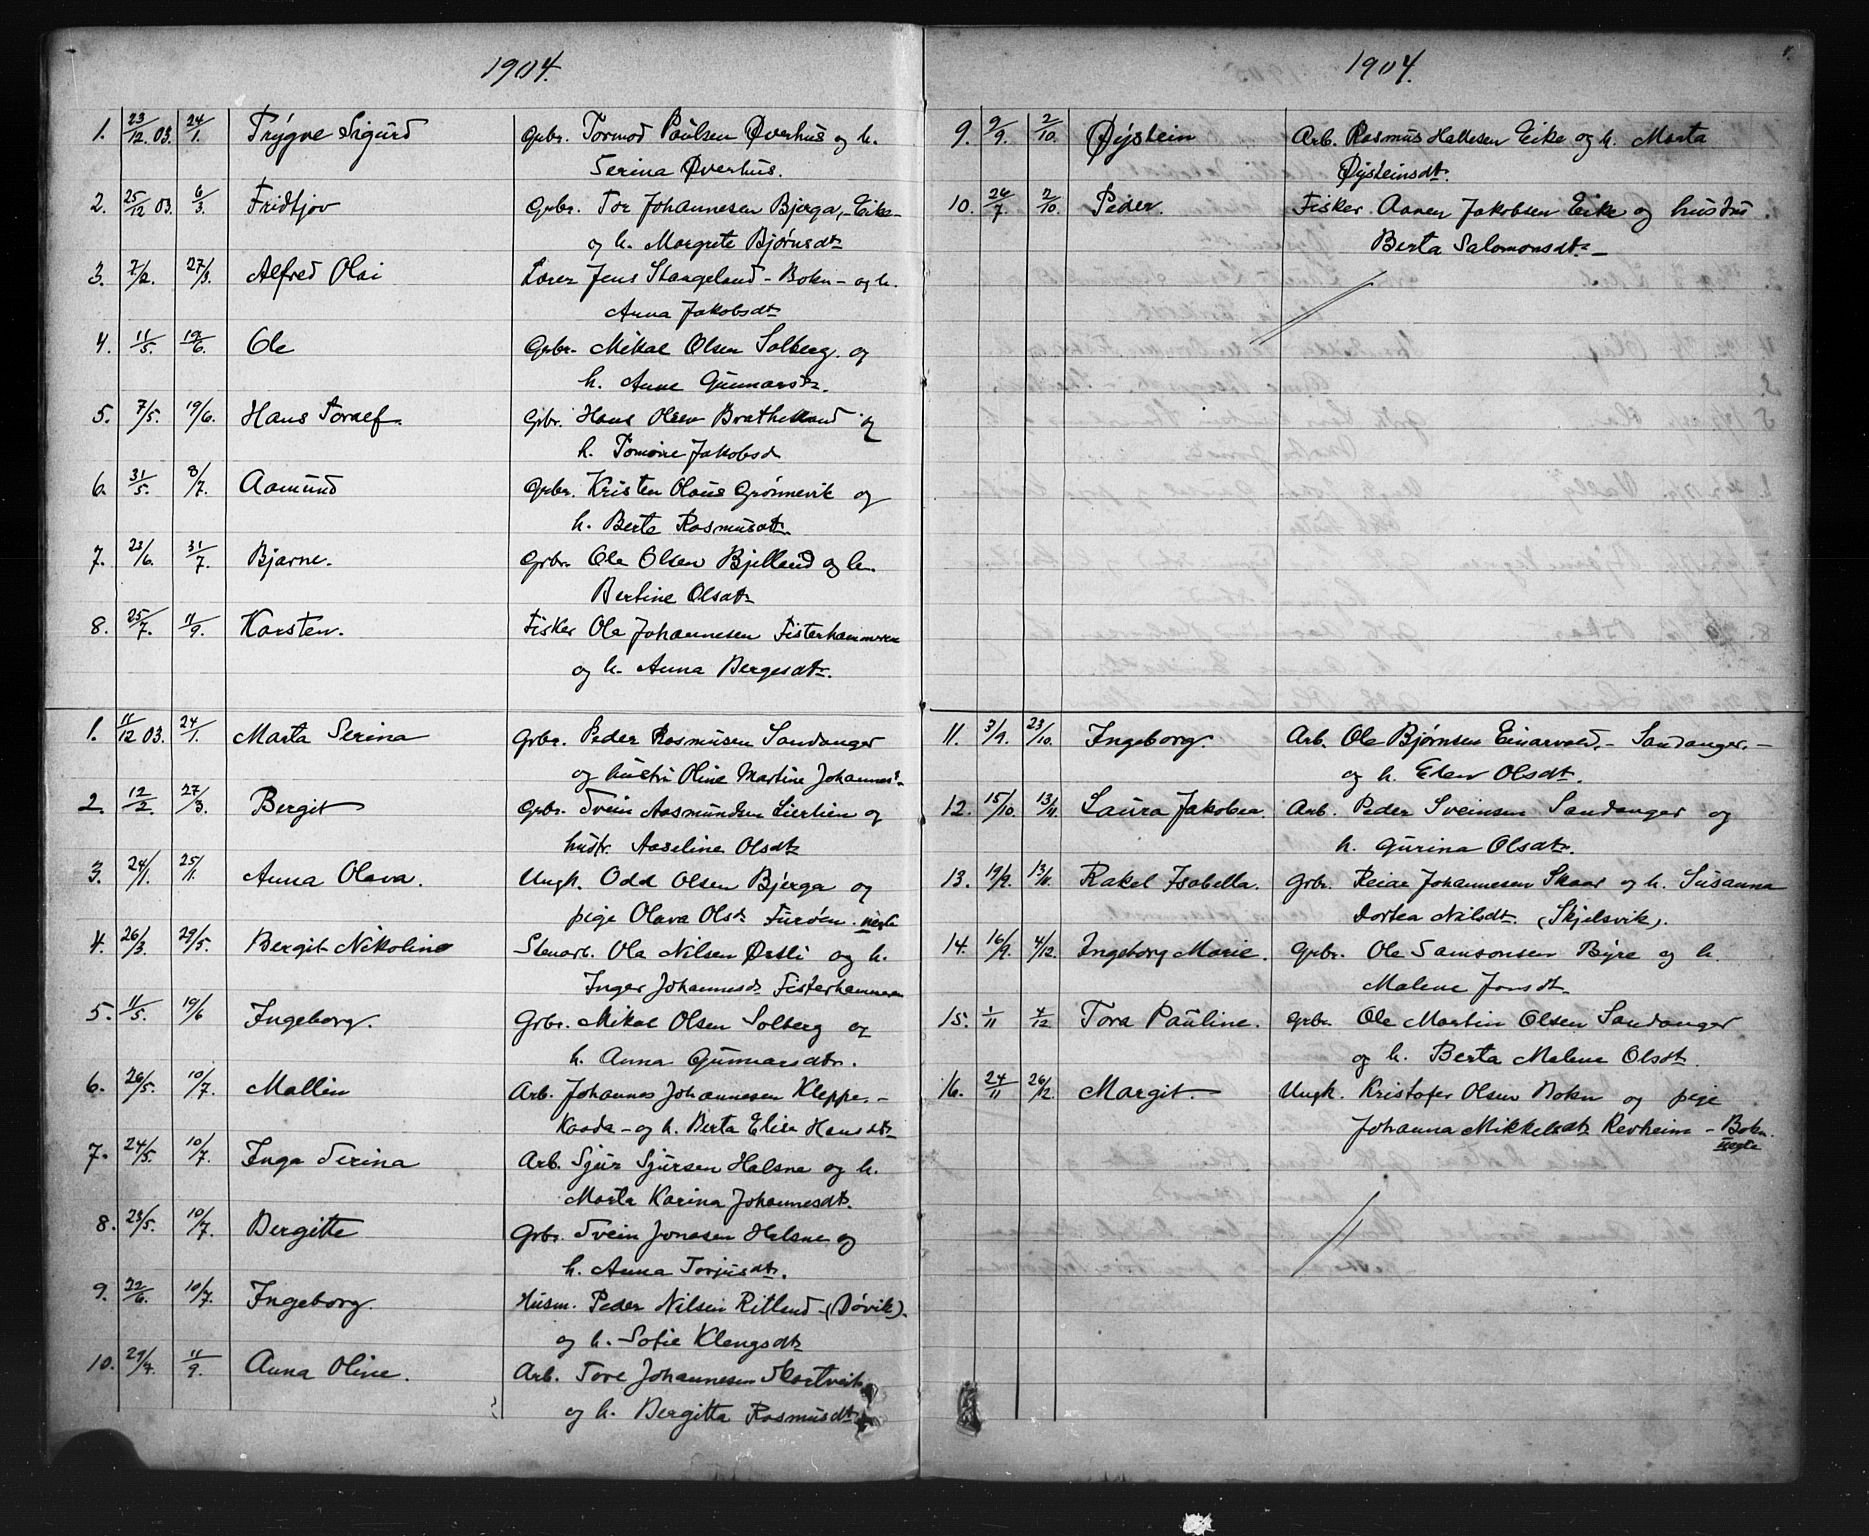 1904.
1. 23/12 03. 24/1. Trygve Sigurd Grbr. Tormod Paulsen Øverhus og h.
Serina Øverhus.
2. 25/12 03. 6/3. Fridtjov Grbr. Tor Johannesen Bjerga, - Eike -
og h. Margrete Bjørnsdtr
3. 7/2. 27/3. Alfred Olai Lærer Jens Staageland - Bokn - og h.
Anna Jakobsdtr
4. 11/5. 19/6. Ole Grbr. Mikal Olsen Solberg og
h. Anne Gunnarsdtr.
5. 7/5. 19/6. Hans Toralf. Grbr. Hans Olsen Brathetland og
h. Tomine Jakobsd
6. 31/5. 8/7. Aamund Grbr. Kristen Olaus Grønnevik og
h. Berte Rasmusdtr.
7. 23/6. 31/7. Bjarne. Grbr. Ole Olsen Bjelland og h.
Bertine Olsdtr
8. 25/7. 11/9. Karsten. Fisker Ole Johannesen Fisterhammeren
og h. Anna Bergesdtr.
1. 11/12 03. 24/1. Marta Serina Grbr. Peder Rasmusen Sandanger
og hustru Oline Martine Johannesdr.
2. 12/2. 27/3. Bergit Grbr. Svein Aasmundsen Lierlien og
hustr. Aaseline Olsdtr
3. 24/1. 25/1. Anna Olava. Ungk. Odd Olsen Bjerga og
pige Olava Olsdr Furøen. uægte
4. 26/3. 29/5. Bergit Nikoline Stenarb. Ola Nilsen Østli og h.
Inger Johannesdr Fisterhammeren
5. 11/5. 19/6 Ingeborg. Grbr. Mikal Olsen Solberg og
h. Anna Gunnarsdtr.
6. 26/5. 10/7. Mallin Arb. Johannes Johannesen Kleppe. -
Kaada - og h. Berta Elise Hansdtr
7. 24/5. 10/7. Inga Serina Arb. Sjur Sjursen Halsne og h.
Marta Karina Johannesdtr.
8. 23/5. 10/7. Bergitte Grbr. Svein Jonasen Halsne og
h. Anna Torjusdtr.
9. 22/6. 10/7. Ingeborg. Husm. Peder Nilsen Ritland - (Døvik).
og h. Sofie Klengsdtr
10. 29/7. 11/9. Anna Oline. Arb. Tore Johannesen Hartveit
og h. Bergitta Rasmusdtr
1904.
9. 9/9. 2/10. Øystein Arb. Rasmus Hallesen Eike og h. Marta
Øysteinsdtr.
10. 26/7. 2/10. Peder. Fisker Aanen Jakobsen Eike og hustru
Berta Salomonsdtr. -
11. 3/9. 23/10. Ingeborg. Arb. Ole Bjørnsen Einarvold. - Sandanger. -
og h. Elen Olsdtr.
12. 15/10. 13/11. Laura Jakobea. Arb. Peder Sveinsen Sandanger og
h. Gurina Olsdtr.
13. 19/9. 13/11. Rakel Isabella. Grbr. Reiar Johannesen Skaar og h. Susanna
Dortea Nilsdtr. (Skjelsvik).
14. 16/9. 4/12. Ingeborg Marie. Grbr. Ole Samsonsen Byre og h.
Malene Jonsdtr.
15. 1/11 4/12. Tora Pauline. Grbr. Ole Martin Olsen Sandanger
og h. Berta Malene Olsdtr.
16. 24/11 26/12. Margit. Ungk. Kristofer Olsen Bokn og pige
Johanna Mikkelsdtr Revheim - Bokn.
uægte